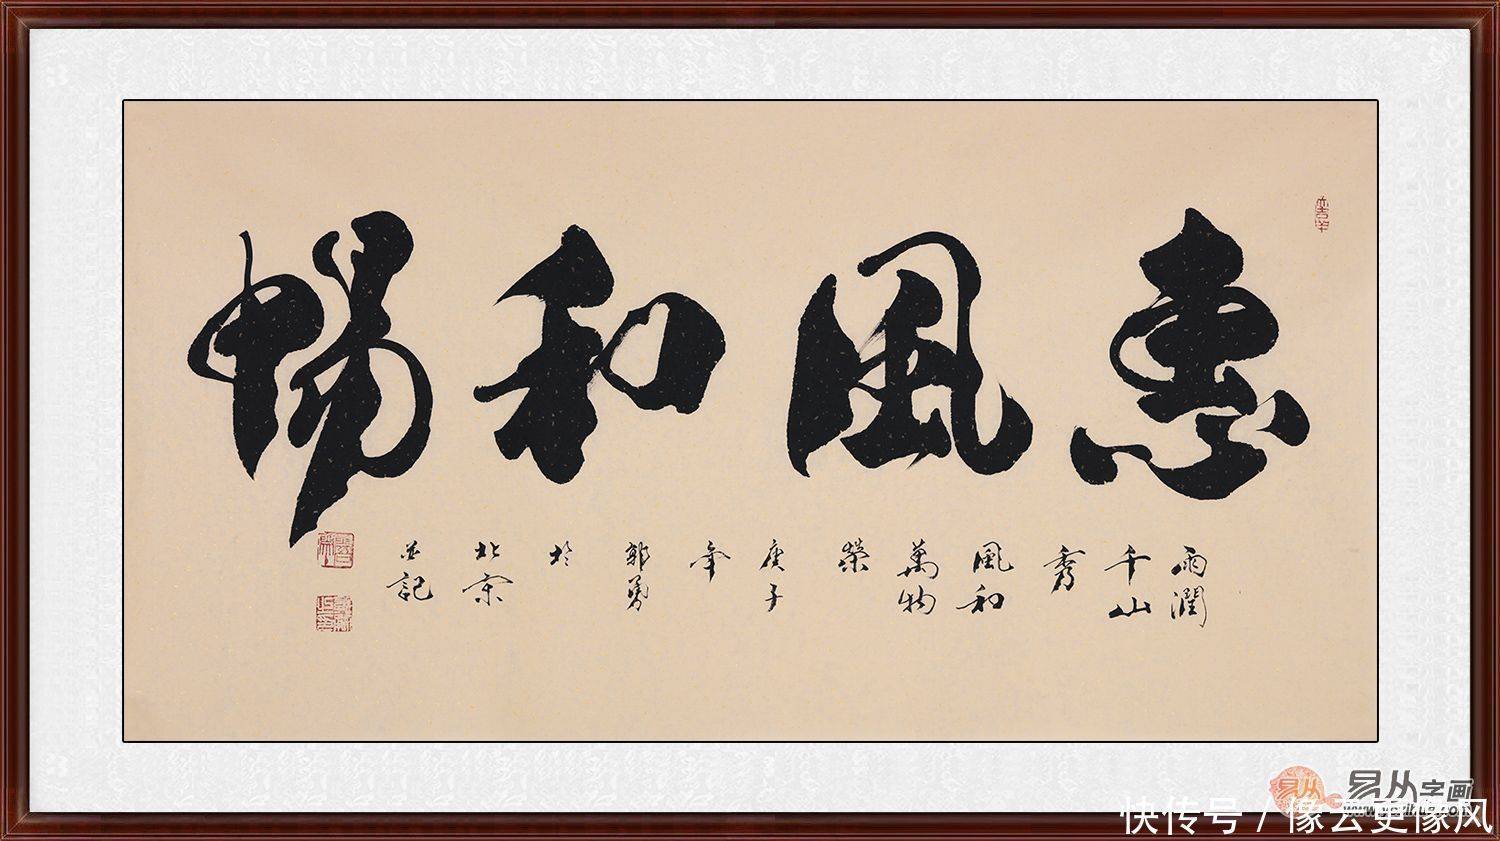 惠風和暢
雨潤
千山
秀
風和
萬物
榮
庚子
年
郭勇
於
北京
並記
易从字画
快传号 / 像云更像风